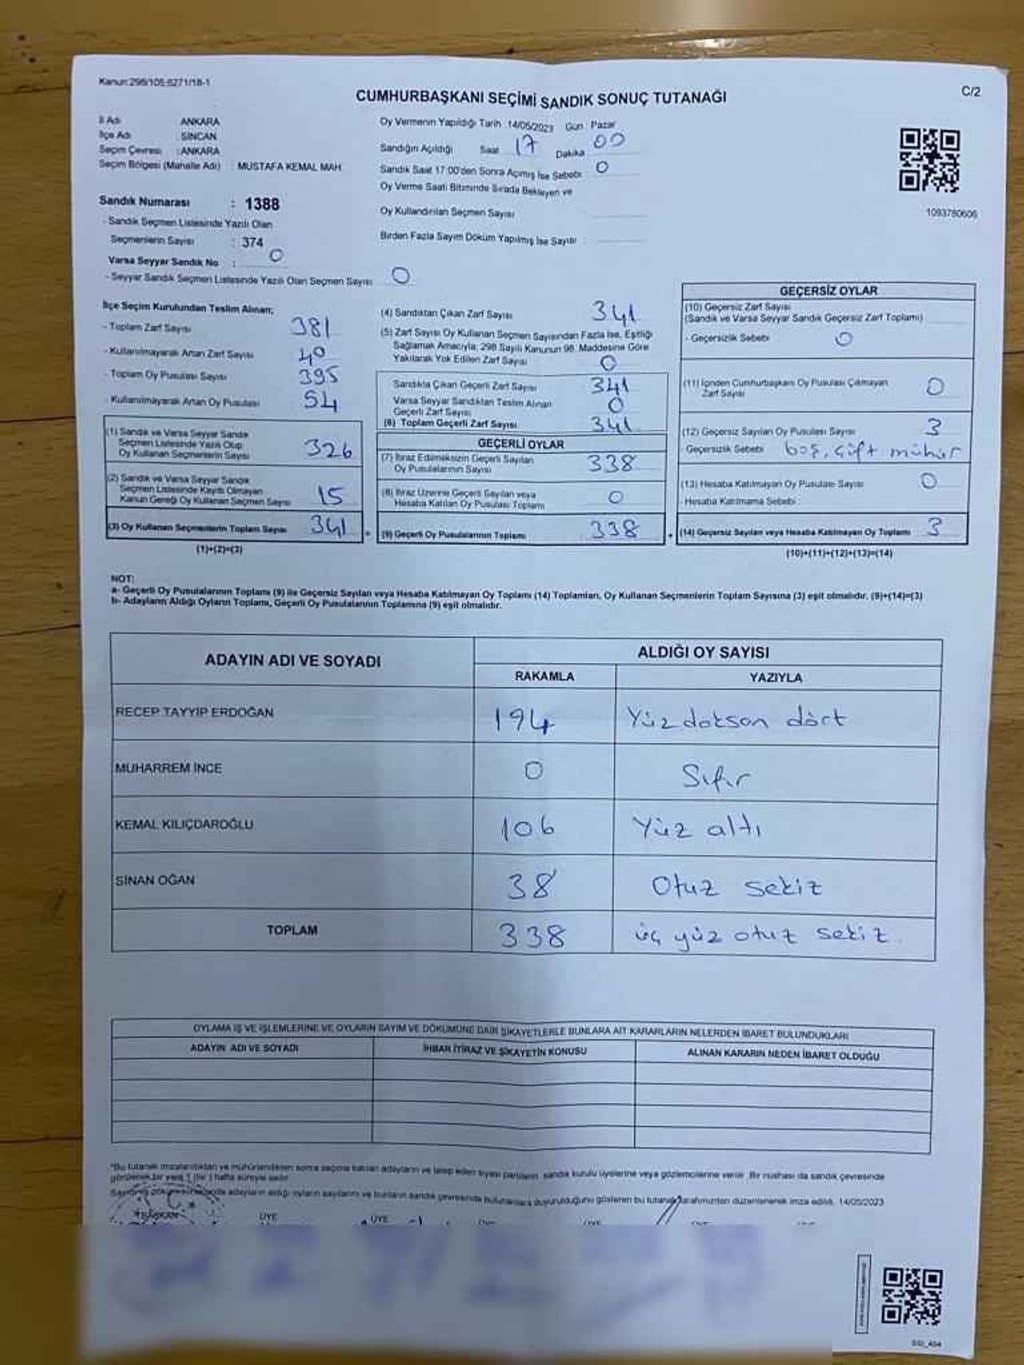 Kanun:298/105-6271/18-1
C/2
CUMHURBAŞKANI SEÇİMİ SANDIK SONUÇ TUTANAĞI
İl Adı : ANKARA
İlçe Adı : SİNCAN
Seçim Çevresi : ANKARA
Seçim Bölgesi (Mahalle Adı) : MUSTAFA KEMAL MAH.
Oy Vermenin Yapıldığı Tarih :14/05/2023 Gün : Pazar
Sandığın Açıldığı Saat 17 Dakika 00
Sandık Saat 17:00'den Sonra Açılmış İse Sebebi : 0
Oy Verme Saati Bitiminde Sırada Bekleyen ve
Oy Kullandırılan Seçmen Sayısı
Birden Fazla Sayım Döküm Yapılmış İse Sayısı :
1093780606
Sandık Numarası : 1388
- Sandık Seçmen Listesinde Yazılı Olan
Seçmenlerin Sayısı : 374
Varsa Seyyar Sandık No : 0
- Seyyar Sandık Seçmen Listesinde Yazılı Olan Seçmen Sayısı: 0
İlçe Seçim Kurulundan Teslim Alınan;
- Toplam Zarf Sayısı 381
- Kullanılmayarak Artan Zarf Sayısı 40
- Toplam Oy Pusulası Sayısı 395
- Kullanılmayarak Artan Oy Pusulası 54
(1) Sandık ve Varsa Seyyar Sandık
Seçmen Listesinde Yazılı Olup
Oy Kullanan Seçmenlerin Sayısı 326
(2) Sandık ve Varsa Seyyar Sandık
Seçmen Listesinde Kayıtlı Olmayan
Kanun Gereği Oy Kullanan Seçmen Sayısı 15
(3) Oy Kullanan Seçmenlerin Toplam Sayısı 341
(1)+(2)=(3)
(4) Sandıktan Çıkan Zarf Sayısı 341
(5) Zarf Sayısı Oy Kullanan Seçmen Sayısından Fazla İse, Eşitliği
Sağlamak Amacıyla; 298 Sayılı Kanunun 98. Maddesine Göre
Yakılarak Yok Edilen Zarf Sayısı 0
Sandıkta Çıkan Geçerli Zarf Sayısı 341
Varsa Seyyar Sandıktan Teslim Alınan
Geçerli Zarf Sayısı 0
(6) Toplam Geçerli Zarf Sayısı 341
GEÇERLİ OYLAR
(7) İtiraz Edilmeksizin Geçerli Sayılan
Oy Pusulalarının Sayısı 338
(8) İtiraz Üzerine Geçerli Sayılan veya
Hesaba Katılan Oy Pusulası Toplamı 0
(9) Geçerli Oy Pusulalarının Toplamı 338
GEÇERSİZ OYLAR
(10) Geçersiz Zarf Sayısı
(Sandık ve Varsa Seyyar Sandık Geçersiz Zarf Toplamı)
- Geçersizlik Sebebi 0
(11) İçinden Cumhurbaşkanı Oy Pusulası Çıkmayan
Zarf Sayısı 0
(12) Geçersiz Sayılan Oy Pusulası Sayısı 3
- Geçersizlik Sebebi boş, çift mühür
(13) Hesaba Katılmayan Oy Pusulası Sayısı : 0
- Hesaba Katılmama Sebebi :
(14) Geçersiz Sayılan veya Hesaba Katılmayan Oy Toplamı 3
(10)+(11)+(12)+(13)=(14)
NOT:
a- Geçerli Oy Pusulalarının Toplamı (9) ile Geçersiz Sayılan veya Hesaba Katılmayan Oy Toplamı (14) Toplamları, Oy Kullanan Seçmenlerin Toplam Sayısına (3) eşit olmalıdır. (9)+(14)=(3)
b- Adayların Aldığı Oyların Toplamı, Geçerli Oy Pusulalarının Toplamına (9) eşit olmalıdır.
ADAYIN ADI VE SOYADI
ALDIĞI OY SAYISI
RAKAMLA YAZIYLA
RECEP TAYYİP ERDOĞAN 194 Yüz doksan dört
MUHARREM İNCE 0 Sıfır
KEMAL KILIÇDAROĞLU 106 Yüz altı
SİNAN OĞAN 38 Otuz sekiz
TOPLAM 338 üç yüz otuz sekiz
OYLAMA İŞ VE İŞLEMLERİNE VE OYLARIN SAYIM VE DÖKÜMÜNE DAİR ŞİKAYETLERLE BUNLARA AİT KARARLARIN NELERDEN İBARET BULUNDUKLARI
ADAYIN ADI VE SOYADI İHBAR İTİRAZ VE ŞİKAYETİN KONUSU ALINAN KARARIN NEDEN İBARET OLDUĞU
*Bu tutanak imzalandıktan ve mühürlendikten sonra seçime katılan adayların ve talep eden siyasi partilerin sandık kurulu üyelerine veya gözlemcilerine verilir. Bir nüshası da sandık çevresinde
süreyle asılır.
adayların aldığı oyların sayılarını ve bunların sandık çevresinde bulunanlara duyurulduğunu gösteren bu tutanak tarafımızdan düzenlenerek imza edildi. 14/05/2023
BAŞKAN ÜYE ÜYE